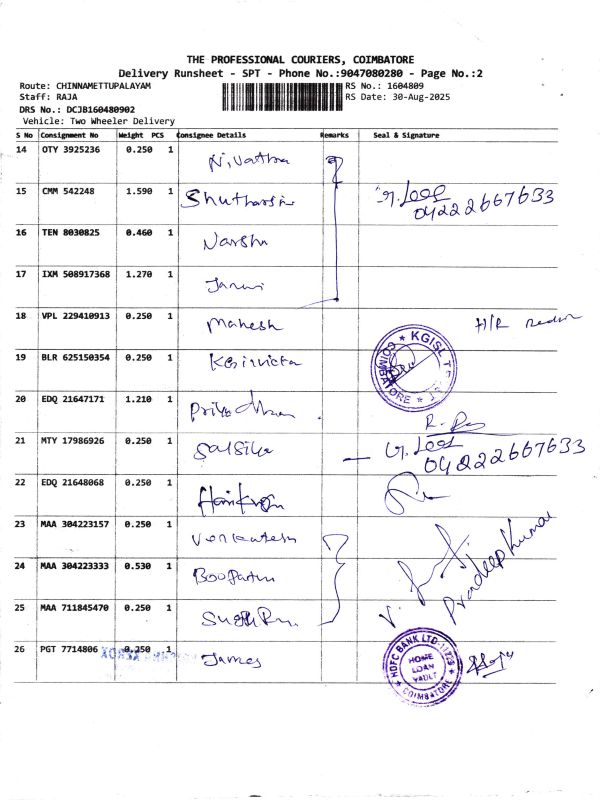 THE PROFESSIONAL COURIERS, COIMBATORE
Delivery Runsheet - SPT - Phone No.:9047080280 - Page No.:2
Route: CHINNAMETTUPALAYAM RS No.: 1604809
Staff: RAJA RS Date: 30-Aug-2025
DRS No.: DCJB160480902
Vehicle: Two Wheeler Delivery
S No Consignment No Weight PCS Consignee Details Remarks Seal & Signature
14 OTY 3925236 0.250 1 N.
15 CMM 542248 1.590 1 04222667633
16 TEN 8030825 0.460 1 Varshu
17 IXM 508917368 1.270 1
18 VPL 229410913 0.250 1 Mahesh H/R
19 BLR 625150354 0.250 1 KGISL COIMBATORE
20 EDQ 21647171 1.210 1 Priya
21 MTY 17986926 0.250 1 04222667633
22 EDQ 21648068 0.250 1
23 MAA 304223157 0.250 1 Venkatesh
24 MAA 304223333 0.530 1 Pradeep Kumar
25 MAA 711845470 0.250 1
26 PGT 7714806 0.250 1 James HDFC BANK LTD HOME LOAN VAULT COIMBATORE